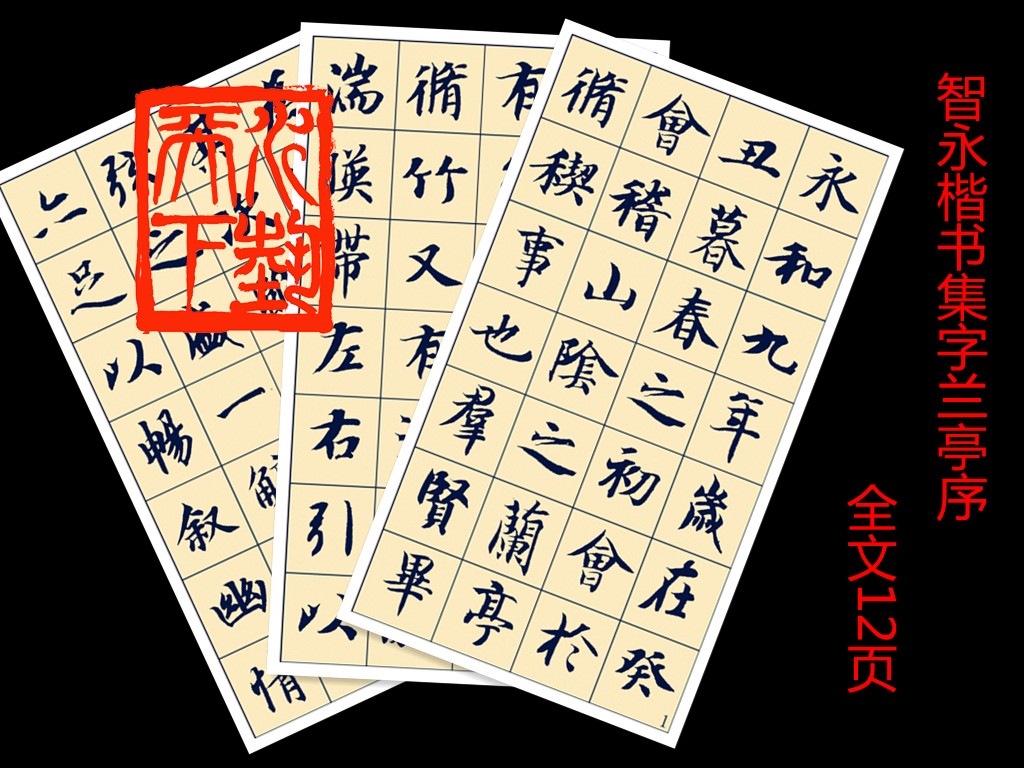 智永楷书集字兰亭序
全文12页
永和九年歲在癸
丑暮春之初會於
會稽山陰之蘭亭
脩稧事也羣賢畢
1
有
脩竹又有
湍暎帶左右引以
弦之盛一觴
亦足以暢叙幽情
心
天下